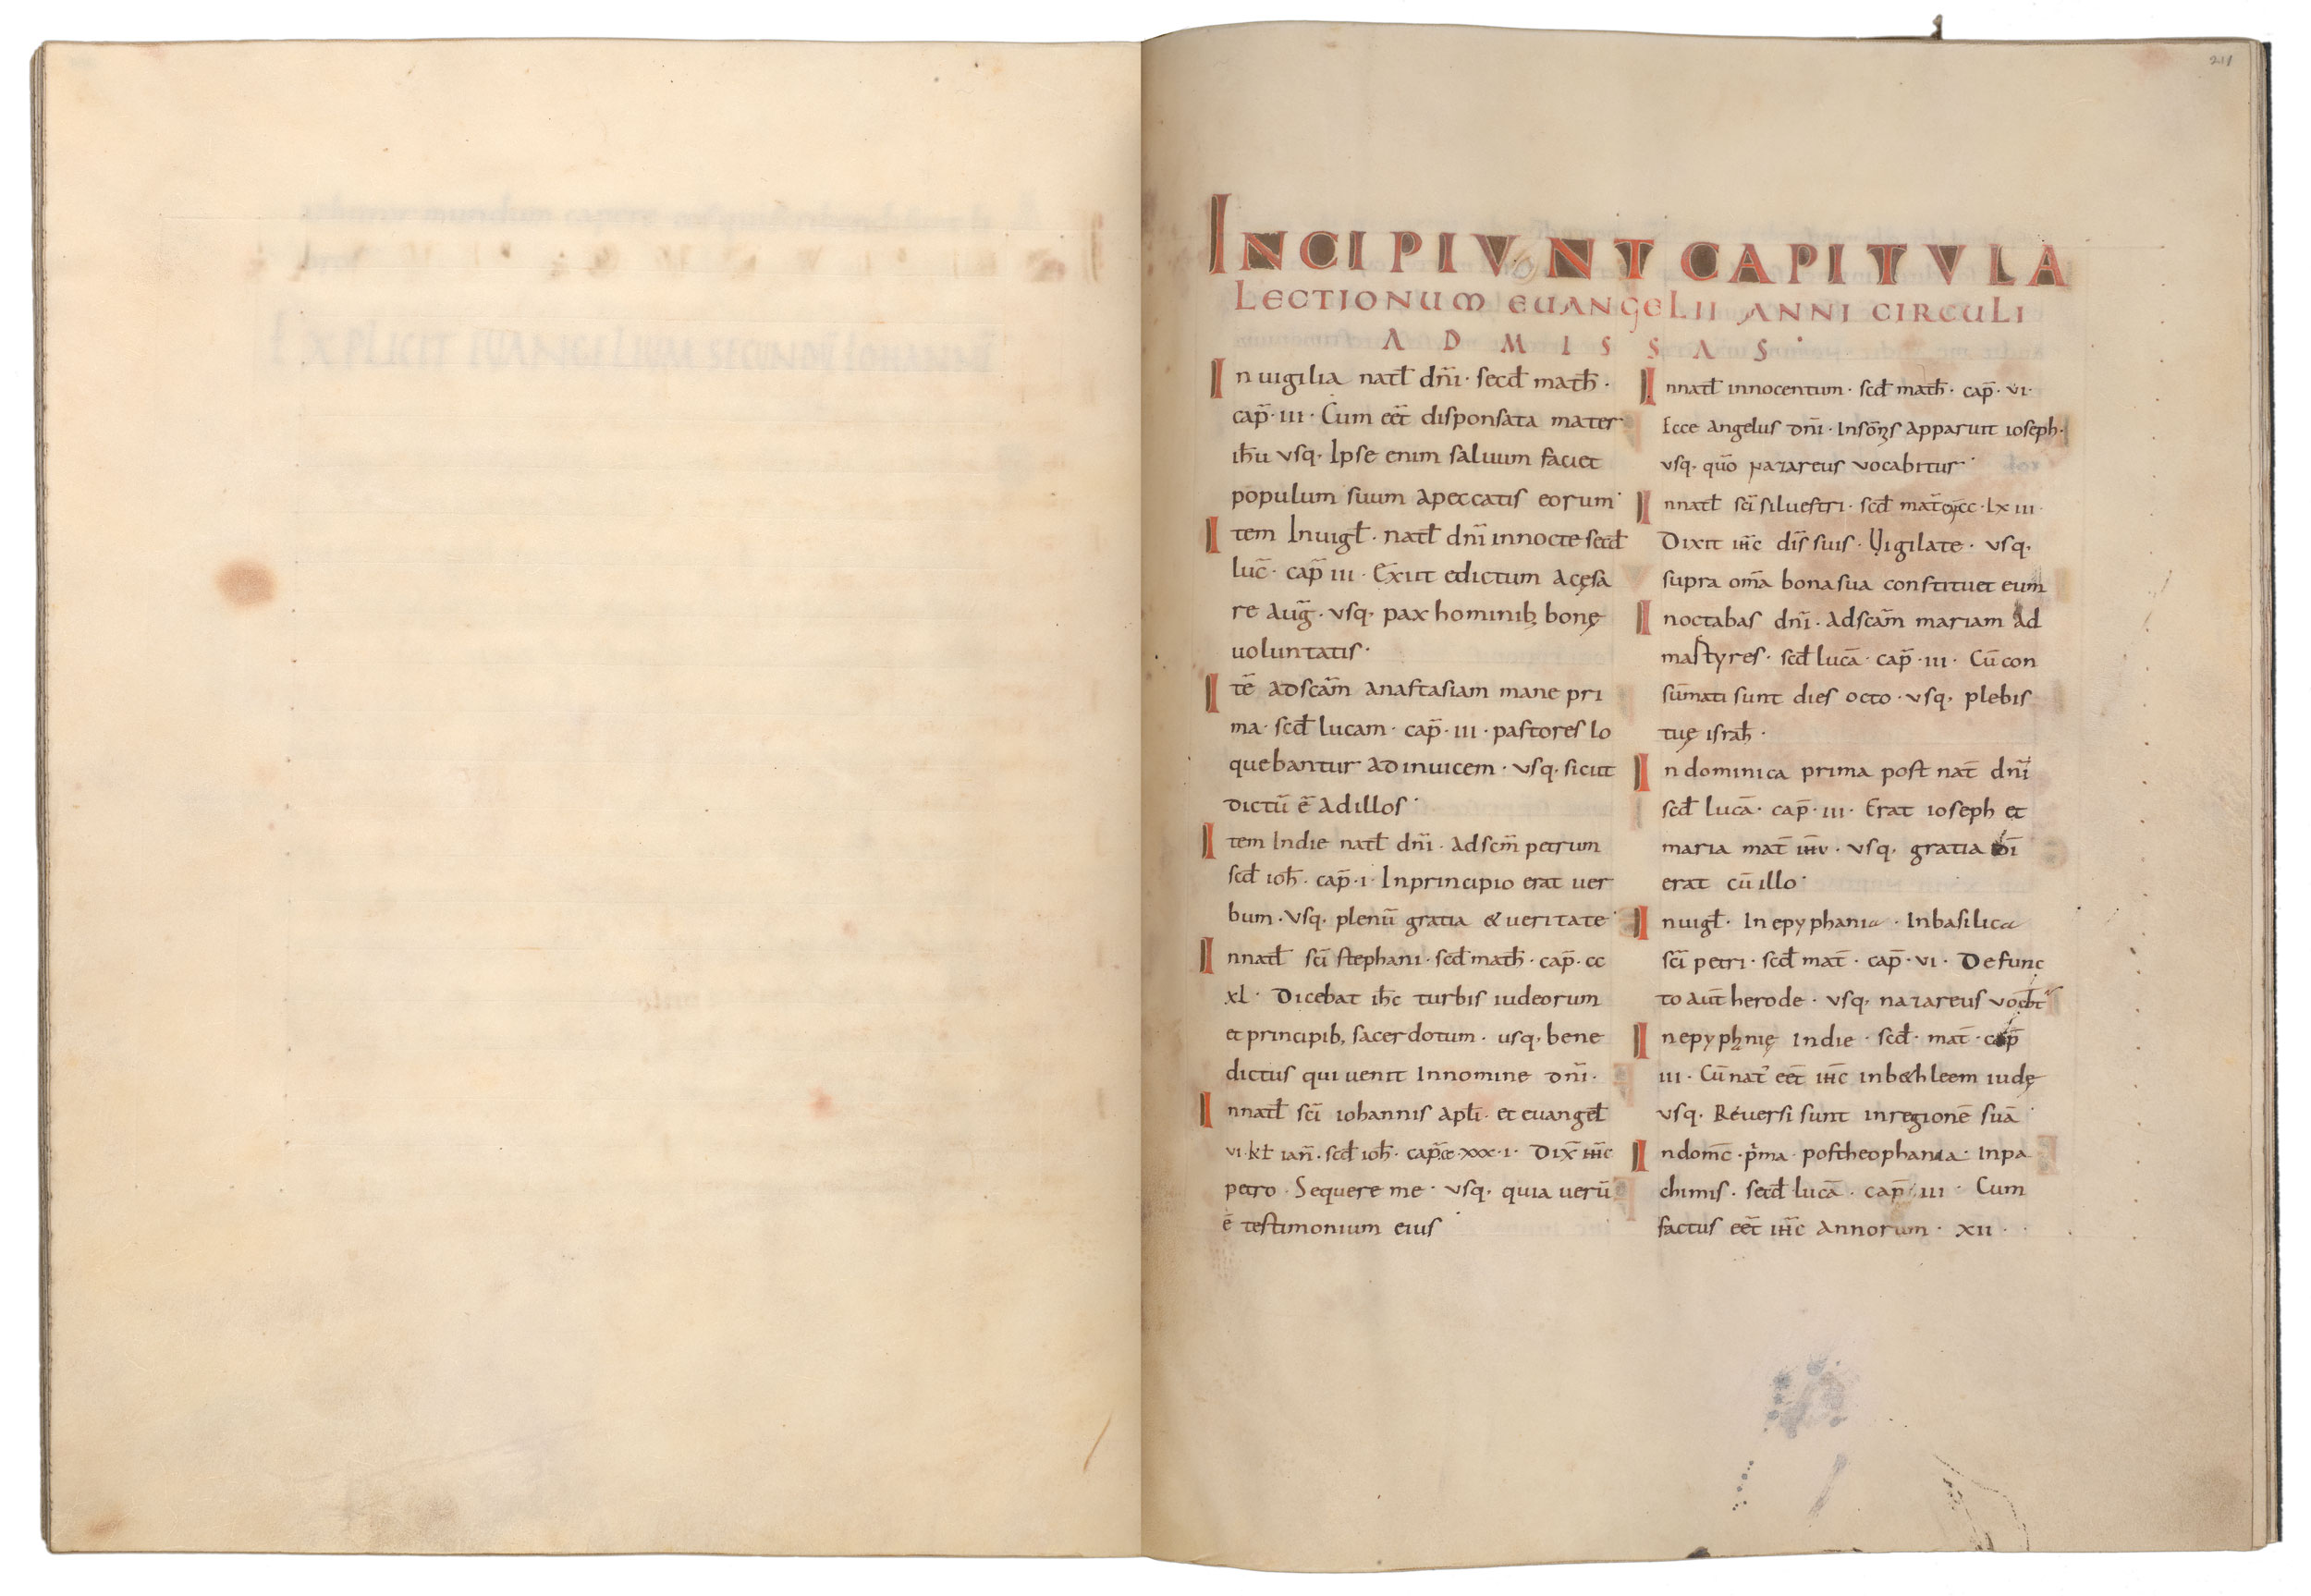 211
INCIPIVNT CAPITVLA
LECTIONUM EUANGELII ANNI CIRCULI
AD MISSAS·
In uigilia natł dñi· secđ matħ·
cap̄·III· Cum eēt disponsata mater
iħu vsq· Ipse enim saluum faciet
populum suum apeccatis eorum·
Item Inuigł· natł dñi innocte secđ
luc̄· cap̄ III· Exiit edictum acęsa
re auḡ· vsq· pax hominib; bonę
uoluntatis·
Itē adscām anastasiam mane pri
ma· scđ lucam· cap̄·III· pastores lo
quebantur adinuicem· vsq· sicut
dictū ē adillos·
Item Indie natł dñi· adscm̄ petrum
scđ ioħ· cap̄·I· Inprincipio erat uer
bum· vsq· plenū gratia & ueritate·
Innatł sc̄i stephani· scđ matħ· cap̄· cc
xl· Dicebat iħc turbis iudeorum
et principib; sacerdotum· usq· bene
dictus qui uenit Innomine dñi·
Innatł sc̄i iohannis apłi· et euangeł
VI·kł iañ· scđ ioħ· cap̄·cc·xxx·I· Dix̄ iħc
petro· Sequere me· vsq· quia uerū
ē testimonium eius
Innatł innocentum· scđ matħ· cap̄· VI·
Ecce angelus dñi· Insōn̄s apparuit ioseph·
vsq· quō nazareus vocabitur·
Innatł sc̄i siluestri· scđ mat̄ cc·lxIII·
Dixit iħc dīs suis· Uigilate· vsq·
supra om̄a bona sua constituet eum
Inoctabas dñi· adscām mariam ad
martyres· scđ lucā· cap̄·III· Cū con
sūmati sunt dies octo· vsq· plebis
tuę israħ·
In dominica prima post nat̄ dñi
scđ lucā· cap̄·III· Erat ioseph et
maria mat̄ iħu· vsq· gratia dī
erat cū illo·
Inuigł· In epyphania· Inbasilica
sc̄i petri· scđ mat̄· cap̄·VI· Defunc
to aut̄ herode· vsq· nazareus vocbt̄
Inepyphnię Indie· scđ· mat̄· cap̄
III· Cū nat' eēt iħc inbethleem iudę
vsq· Reuersi sunt inregionē suā·
Indom̄c· p̄ma· posttheophania· Inpa
chimis· secđ lucā· cap̄ III· Cum
factus eēt iħc annorum· XII·